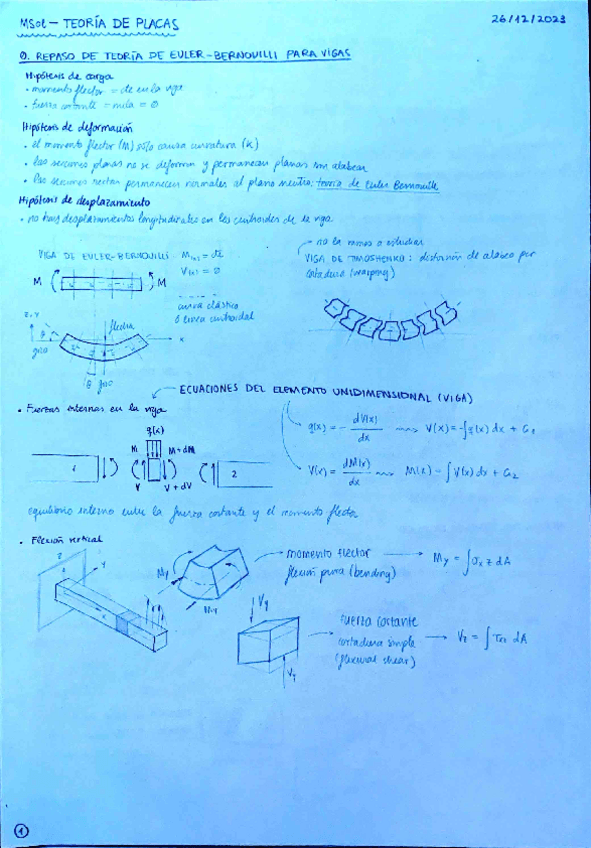 MSol - TEORÍA DE PLACAS
26/12/2023
0. REPASO DE TEORÍA DE EULER-BERNOUILLI PARA VIGAS
Hipótesis de carga
• momento flector = cte en la viga
• fuerza cortante = nula = 0
Hipótesis de deformación
• el momento flector (M) sólo causa curvatura (κ)
• las secciones planas no se deforman y permanecen planas sin alabear
• las secciones rectas permanecen normales al plano neutro: teoría de Euler Bernouilli
Hipótesis de desplazamiento
• no hay desplazamientos longitudinales en los centroides de la viga
no la vamos a estudiar
VIGA DE EULER-BERNOUILLI M(x) = cte
V(x) = 0
VIGA DE TIMOSHENKO: distorsión de alabeo por
cortadura (warping)
M M
curva elástica
ó línea centroidal
z, v
flecha
x
θ
giro
θ giro
ECUACIONES DEL ELEMENTO UNIDIMENSIONAL (VIGA)
• Fuerzas externas en la viga
q(x) = - dV(x)/dx → V(x) = -∫q(x) dx + C1
q(x)
M M+dM
1 2
V V+dV
V(x) = dM(x)/dx → M(x) = ∫V(x) dx + C2
equilibrio interno entre la fuerza cortante y el momento flector
• Flexión vertical
z
y
x
My
My
momento flector
flexión pura (bending)
→ My = ∫σx z dA
Vy
Vy
fuerza cortante
cortadura simple
(flexural shear)
→ Vz = ∫τxz dA
1